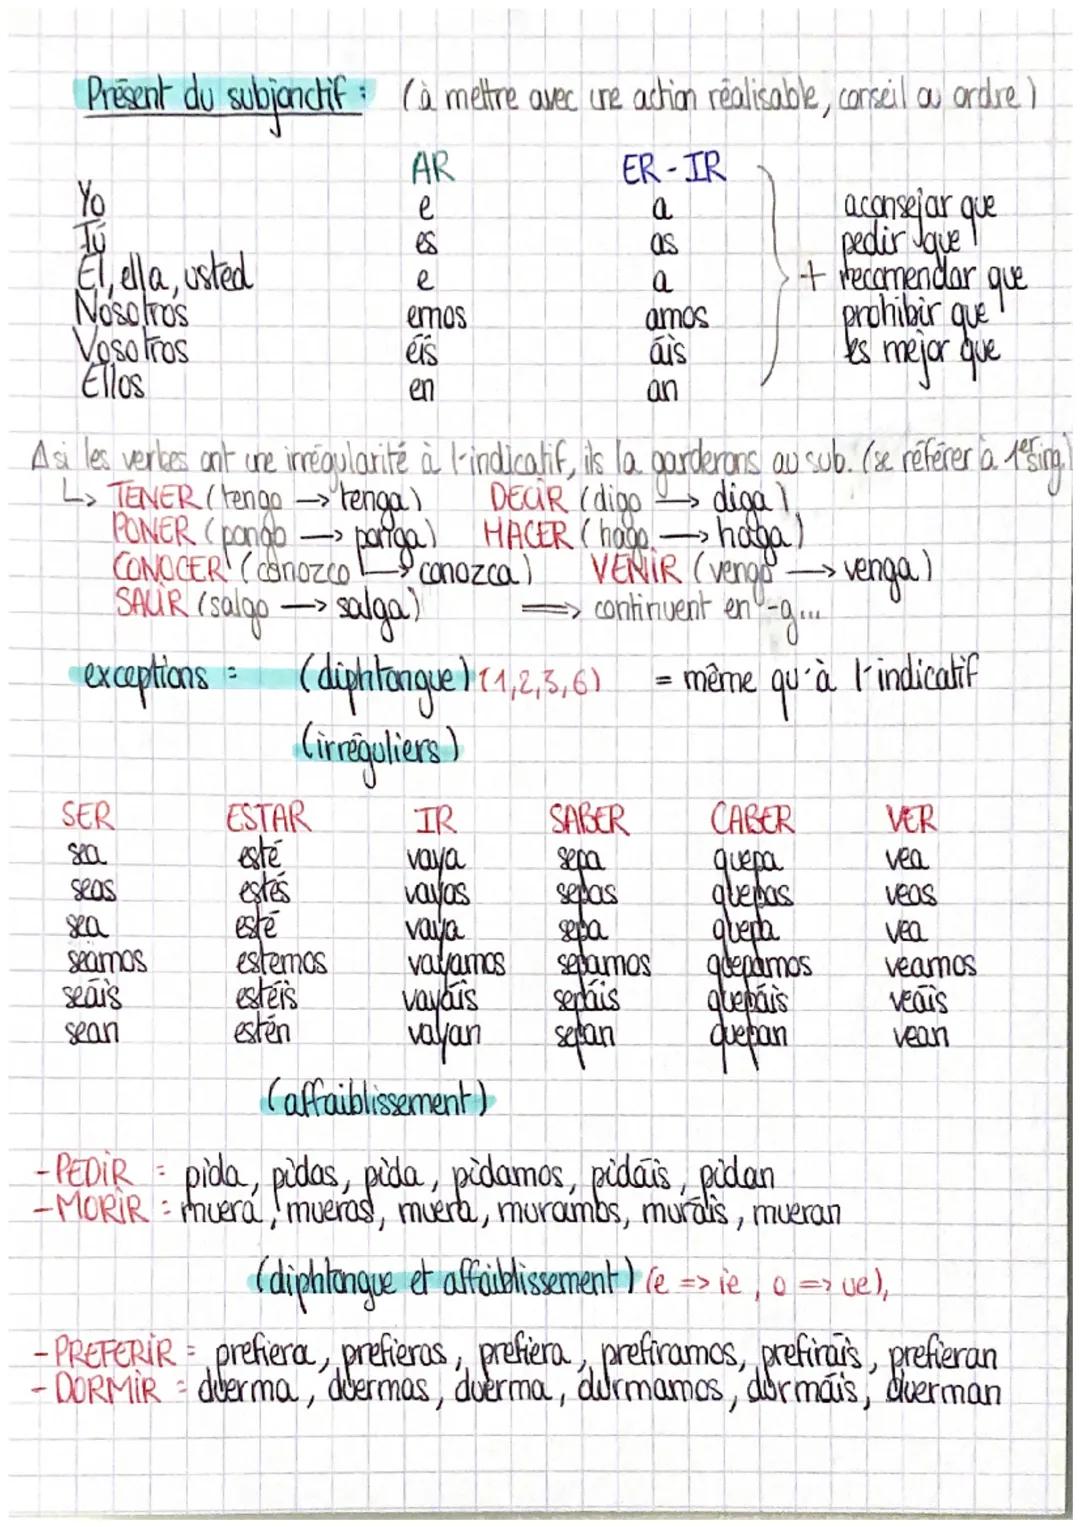 Présent du subjonctif : (à mettre avec une action réalisable, conseil ou ordre)
AR ER-IR
Yo e a aconsejar que
Tú es as pedir que
Él, ella, usted e a + recomendar que
Nosotros emos amos prohibir que
Vosotros éis áis es mejor que
Ellos en an
⚠ si les verbes ont une irrégularité à l'indicatif, ils la garderons au sub. (se référer à 1er sing.)
↳ TENER (tengo → tenga) DECIR (digo → diga)
PONER (pongo → ponga) HACER (hago → haga)
CONOCER (conozco → conozca) VENIR (vengo → venga)
SALIR (salgo → salga) ⇒ continuent en -g...
exceptions = (diphtongue) (1,2,3,6) = même qu'à l'indicatif
(irréguliers)
SER ESTAR IR SABER CABER VER
sea esté vaya sepa quepa vea
seas estés vayas sepas quepas veas
sea esté vaya sepa quepa vea
seamos estemos vayamos sepamos quepamos veamos
seáis estéis vayáis sepáis quepáis veáis
sean estén vayan sepan quepan vean
(affaiblissement)
- PEDIR = pida, pidas, pida, pidamos, pidáis, pidan
- MORIR = muera, mueras, muera, muramos, muráis, mueran
(diphtongue et affaiblissement) (e => ie, o => ue),
- PREFERIR = prefiera, prefieras, prefiera, prefiramos, prefiráis, prefieran
- DORMIR = duerma, duermas, duerma, durmamos, durmáis, duerman